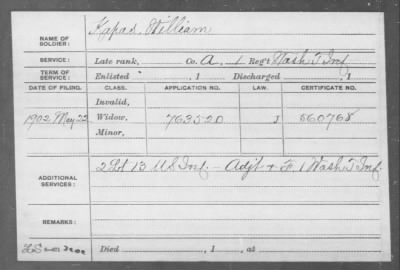 NAME OF SOLDIER: Kapas, William
SERVICE: Late rank, Co. A, 1 Reg't Wash T Inf
TERM OF SERVICE: Enlisted , 1 Discharged , 1
DATE OF FILING. CLASS. APPLICATION NO. LAW. CERTIFICATE NO.
Invalid,
1902 May 22 Widow, 763520 J 560768
Minor,
ADDITIONAL SERVICES: 2 Lt 13 U.S. Inf. – Adjt & F, 1 Wash T Inf.
REMARKS:
Died , 1 , at